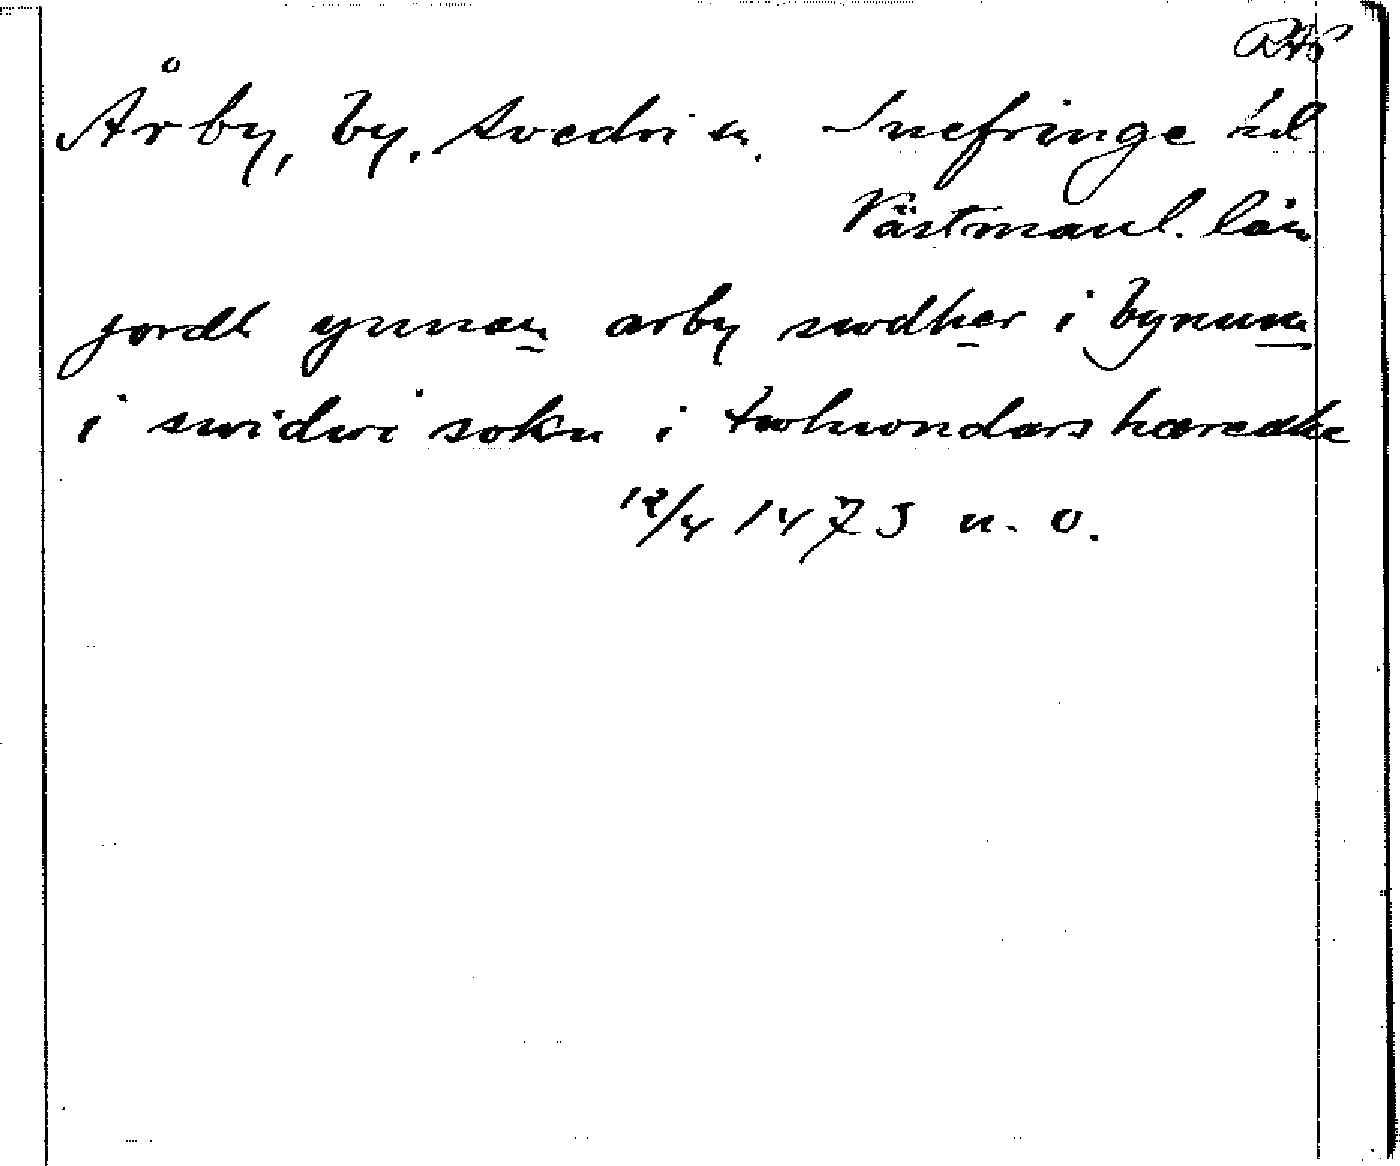 RAP
Årby, by. Svedvi sn. Snefringe hd
Västmanl. län
jordh ynnan arby swdher i bynum
i swidwi sokn i twhwndarshæredhe
12/4 1473 n. o.